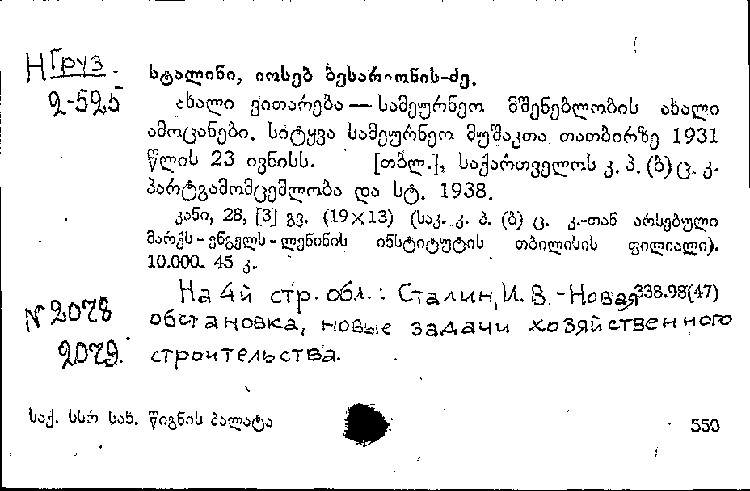 НГруз.
2-525
სტალინი, იოსებ ბესარიონის-ძე.
ახალი ვითარება — სამეურნეო მშენებლობის ახალი
ამოცანები. სიტყვა სამეურნეო მუშაკთა თათბირზე 1931
წლის 23 ივნისს. [თბლ.], საქართველოს კ. პ. (ბ) ც. კ.
პარტგამომცემლობა და სტ. 1938.
კანი, 28, [3] გვ. (19×13) (საკ. კ. პ. (ბ) ც. კ.-თან არსებული
მარქს-ენგელს-ლენინის ინსტიტუტის თბილისის ფილიალი).
10.000. 45 კ.
На 4й стр. обл.: Сталин, И. В. - Новая 338.98(47)
№ 2078 обстановка, новые задачи хозяйственного
2079. строительства.
საქ. სსრ სახ. წიგნის პალატა 550